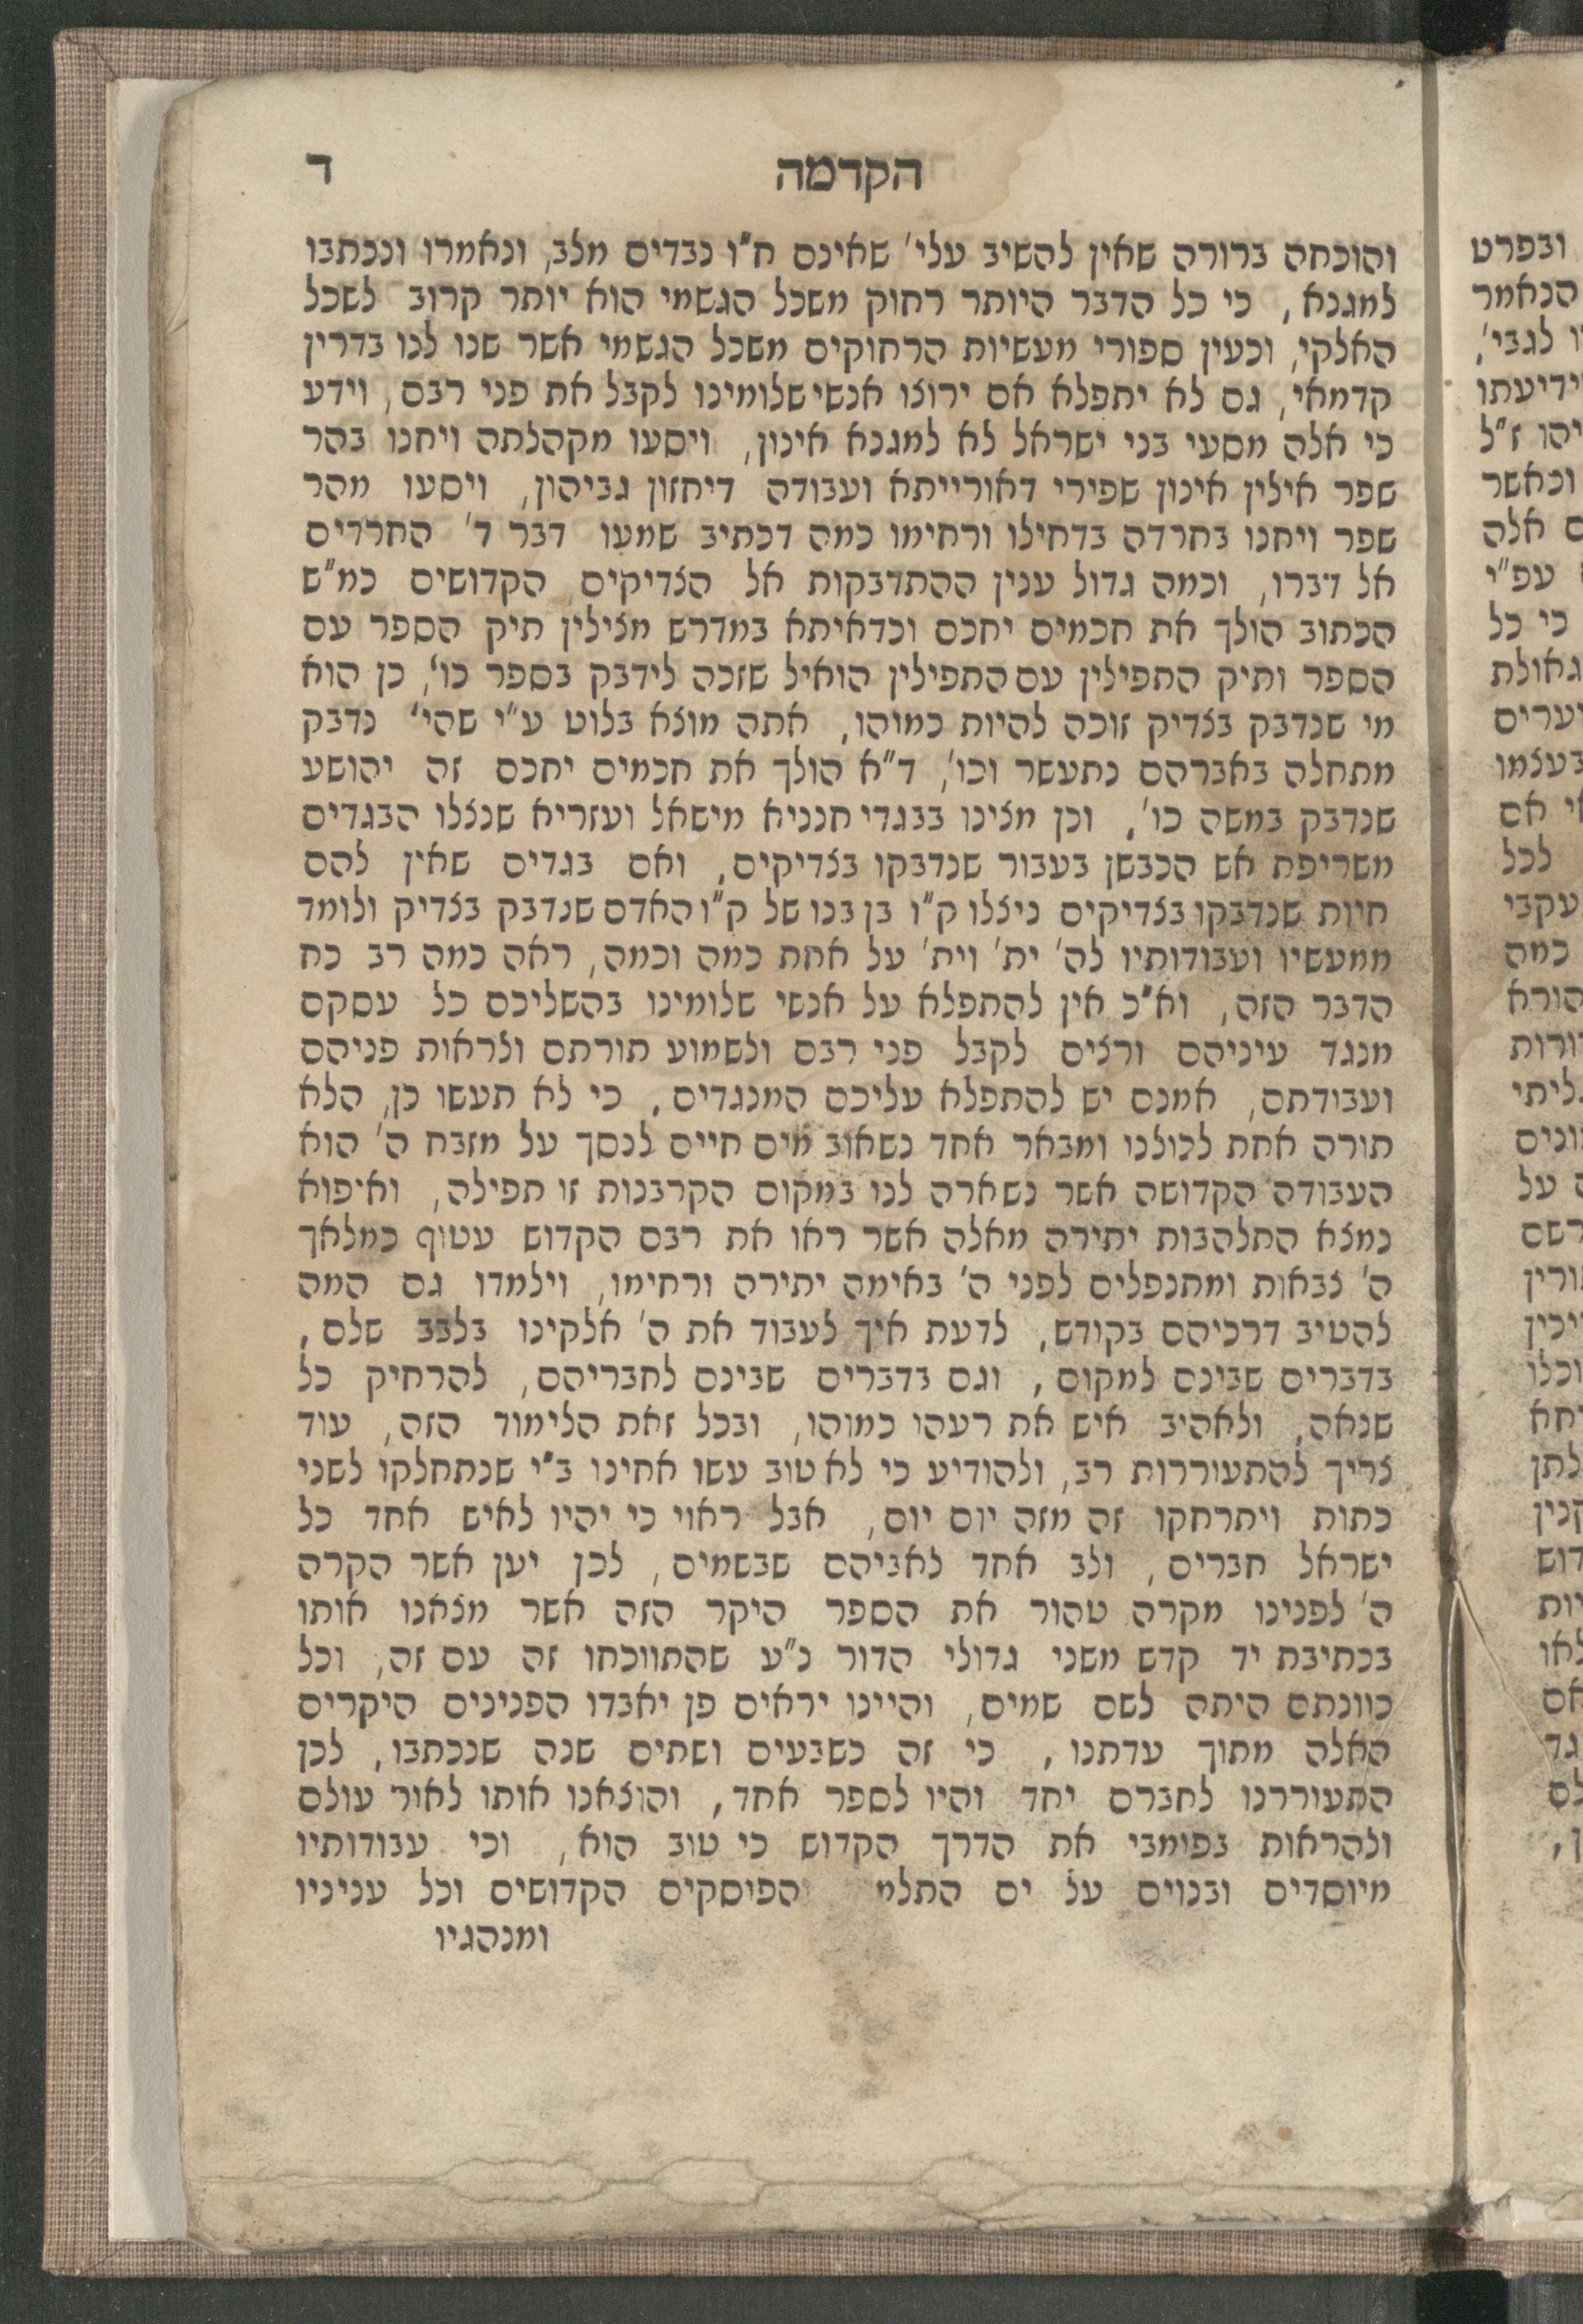 הקדמה
ד
והוכחה ברורה שאין להשיב עלי׳ שאינם ח״ו נבדים מלב, ונאמרו ונכתבו
למגנא, כי כל הדבר היותר רחוק משכל הגשמי הוא יותר קרוב לשכל
האלקי, וכעין ספורי מעשיות הרחוקים משכל הגשמי אשר שנו לנו בדרין
קדמאי, גם לא יתפלא אם ירוצו אנשי שלומינו לקבל את פני רבם, וידע
כי אלה מסעי בני ישראל לא למגנא אינון, ויסעו מקהלתה ויחנו בהר
שפר אילין אינון שפירי דאורייתא ועבודה דיחזון גביהון, ויסעו מהר
שפר ויחנו בחרדה בדחילו ורחימו כמה דכתיב שמעו דבר ד׳ החרדים
אל דברו, וכמה גדול ענין ההתדבקות אל הצדיקים הקדושים כמ״ש
הכתוב הולך את חכמים יחכם וכדאיתא במדרש מצילין תיק הספר עם
הספר ותיק התפילין עם התפילין הואיל שזכה לידבק בספר כו׳, כן הוא
מי שנדבק בצדיק זוכה להיות כמוהו, אתה מוצא בלוט ע״י שהי׳ נדבק
מתחלה באברהם נתעשר וכו׳, ד״א הולך את חכמים יחכם זה יהושע
שנדבק במשה כו׳, וכן מצינו בבגדי חנניא מישאל ועזריא שנצלו הבגדים
משריפת אש הכבשן בעבור שנדבקו בצדיקים, ואם בגדים שאין להם
חיות שנדבקו בצדיקים ניצלו ק״ו בן בנו של ק״ו האדם שנדבק בצדיק ולומד
ממעשיו ועבודותיו לה׳ ית׳ וית׳ על אחת כמה וכמה, ראה כמה רב כח
הדבר הזה, וא״כ אין להתפלא על אנשי שלומינו בהשליכם כל עסקם
מנגד עיניהם ורצים לקבל פני רבם ולשמוע תורתם ולראות פניהם
ועבודתם, אמנם יש להתפלא עליכם המנגדים, כי לא תעשו כן, הלא
תורה אחת לכולנו ומבאר אחד נשאוב מים חיים לנסך על מזבח ה׳ הוא
העבודה הקדושה אשר נשארה לנו במקום הקרבנות זו תפילה, ואיפוא
נמצא התלהבות יתירה מאלה אשר ראו את רבם הקדוש עטוף כמלאך
ה׳ צבאות ומתנפלים לפני ה׳ באימה יתירה ורחימו, וילמדו גם המה
להטיב דרכיהם בקודש, לדעת איך לעבוד את ה׳ אלקינו בלבב שלם,
בדברים שבינם למקום, וגם בדברים שבינם לחבריהם, להרחיק כל
שנאה, ולאהיב איש את רעהו כמוהו, ובכל זאת הלימוד הזה, עוד
צריך להתעוררות רב, ולהודיע כי לא טוב עשו אחינו ב״י שנתחלקו לשני
כתות ויתרחקו זה מזה יום יום, אבל ראוי כי יהיו לאיש אחד כל
ישראל חברים, ולב אחד לאביהם שבשמים, לכן יען אשר הקרה
ה׳ לפנינו מקרה טהור את הספר היקר הזה אשר מצאנו אותו
בכתיבת יד קדש משני גדולי הדור נ״ע שהתווכחו זה עם זה, וכל
כוונתם היתה לשם שמים, והיינו יראים פן יאבדו הפנינים היקרים
האלה מתוך עדתנו, כי זה כשבעים ושתים שנה שנכתבו, לכן
התעוררנו לחברם יחד והיו לספר אחד, והוצאנו אותו לאור עולם
ולהראות בפומבי את הדרך הקדוש כי טוב הוא, וכי עבודותיו
מיוסדים ובנוים על ים התלמ והפוסקים הקדושים וכל עניניו
ומנהגיו
ובפרט
הנאמר
לגבי׳,
ידיעתו
ז״ל
וכאשר
אלה
עפ״י
כי כל
גאולת
לכל
עקבי
כמה
על